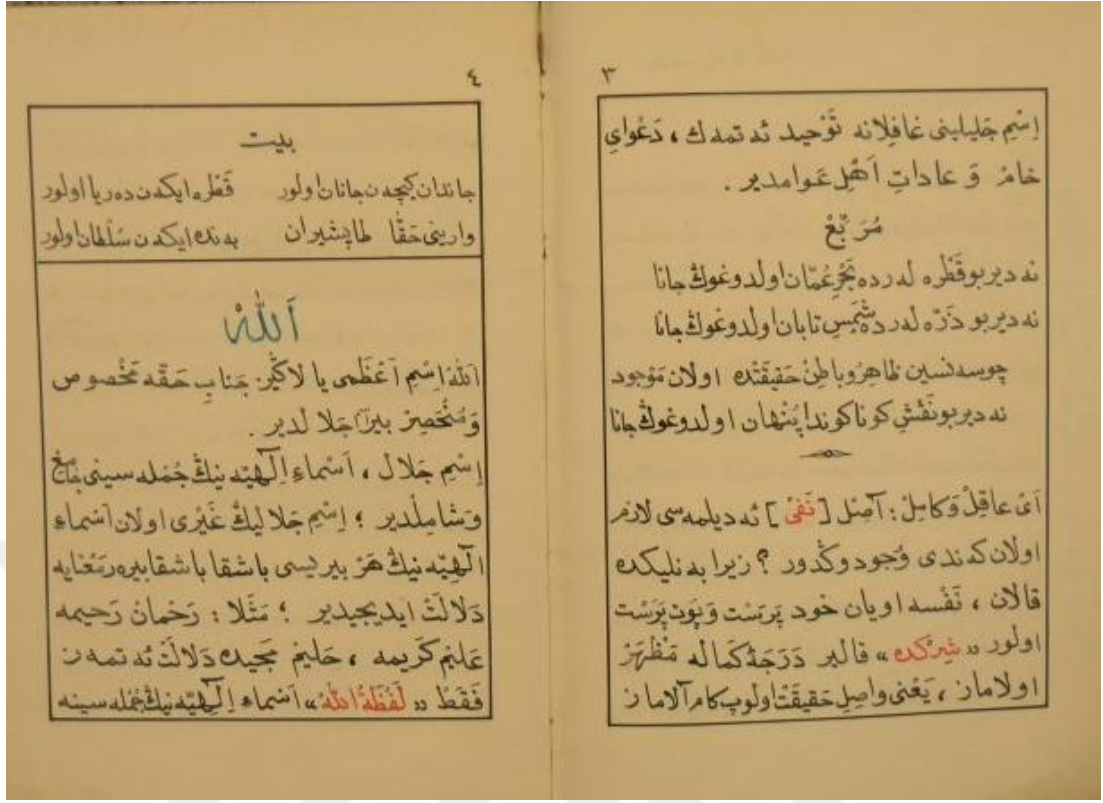 ٣
اِسْمِ جَلیلینی غافِلانه تَوْحید ئه تمه ك ، دَعْوایِ
خامْ وَ عاداتِ اَهْلِ عَوامدیر .
مُرَبَّعْ
نه دیر بو قَطْره لەرده بَحْرِ عُمّان اولدوغوڭ جانا
نه دیر بو ذَرّه لەرده شَمْسِ تابان اولدوغوڭ جانا
چوسه نسین ظاهِرُ وباطِنْ حَقیقَتْده اولان مَوْجود
نه دیر بو نَقْشِ کوناکوندا پَنْهان اولدوغوڭ جانا
اَیْ عاقِلْ وَکامِلْ : آصْل [ نَفْیْ ] ئه دیلمه سی لازم
اولان که ندی وُجودوڭدور ؟ زیرا به نلیکده
قالان ، نَفْسه اویان خود پَرَسْت وَ پوت پَرَسْت
اولور « شِرْکده » قالیر دَرَجَۀ کَماله مَظْهَرْ
اولاماز ، یَعْنی واصِلِ حَقیقَتْ اولوپ کام آلاماز
٤
بیت
جاندان کیچه ن جانان اولور قَطْره ایکه ن ده ریا اولور
وارینی حَقّا طاپشیران به نده ایکه ن سُلْطان اولور
اَللّٰهْ
اَللّٰهْ اِسْمِ اَعْظَمی یا لاڭیز جَنابِ حَقّه مَخْصوص
وَ مُنْحَصِرْ بیر اجَلا لدیر .
اِسْمِ جَلال ، اَسْماءِ اِلٓهیّه نیڭ جُمْله سینی جامِعْ
وَشامِلْدیر ؛ اِسْمِ جَلالیڭ غَیْری اولان اَسْماءِ
اِلٓهیّه نیڭ هَرْ بیریسی باشقا باشقا بیره ر مَعْنایه
دَلالَتْ ایدیجیدیر ؛ مَثَلا : رَحْمانْ رَحیمه
عَلیمْ کَریمه ، حَلیمْ مَجیده دَلالَتْ ئه تمه ز
فَقَطْ « لَفْظَۀ اللّٰهْ » اَسْماءِ اِلٓهیّه نیڭ جُمْله سینه